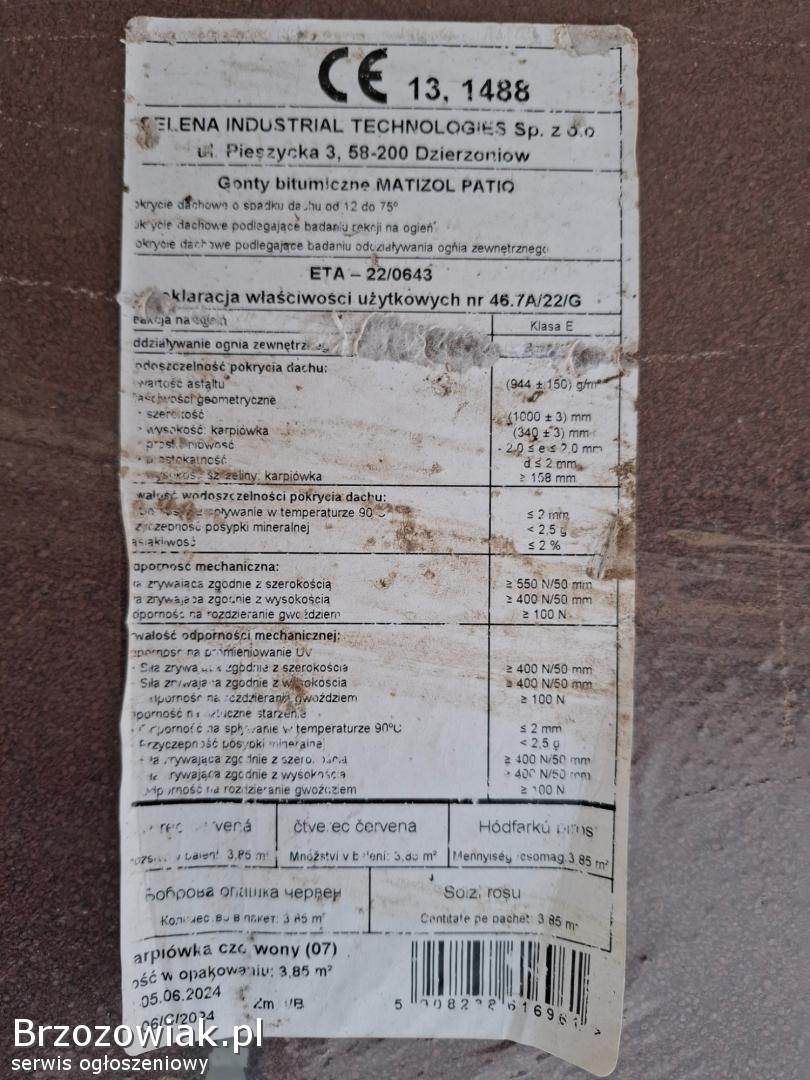 CE 13, 1488
SELENA INDUSTRIAL TECHNOLOGIES Sp. z o.o
ul. Pieszycka 3, 58-200 Dzierzoniow
Gonty bitumiczne MATIZOL PATIO
okrycie dachowe o spadku dachu od 12 do 75°
okrycie dachowe podlegające badaniu rekcji na ogień
okrycie dachowe podlegające badaniu oddziaływania ognia zewnętrznego
ETA – 22/0643
eklaracja właściwości użytkowych nr 46.7A/22/G
eakcja na ogień Klasa E
ddziaływanie ognia zewnętrzneg
odoszczelność pokrycia dachu:
wartość asfaltu (944 ± 150) g/m²
łaściwości geometryczne
- szerokość (1000 ± 3) mm
- wysokość: karpiówka (340 ± 3) mm
- prostoliniowość - 2,0 ≤ e ≤ 2,0 mm
- prostokątność d ≤ 2 mm
- wysokość szczeliny: karpiówka ≥ 158 mm
wałość wodoszczelności pokrycia dachu:
spływanie w temperaturze 90°C ≤ 2 mm
zyczepność posypki mineralnej < 2,5 g
asiąkliwość ≤ 2 %
dporność mechaniczna:
ła zrywająca zgodnie z szerokością ≥ 550 N/50 mm
ła zrywająca zgodnie z wysokością ≥ 400 N/50 mm
dporność na rozdzieranie gwoździem ≥ 100 N
wałość odporności mechanicznej:
dporność na promieniowanie UV
- Siła zrywająca zgodnie z szerokością ≥ 400 N/50 mm
- Siła zrywająca zgodnie z wysokością ≥ 400 N/50 mm
odporność na rozdzieranie gwoździem ≥ 100 N
dporność na sztuczne starzenie
- Odporność na spływanie w temperaturze 90°C ≤ 2 mm
- Przyczepność posypki mineralnej < 2,5 g
iła zrywająca zgodnie z szerokością ≥ 400 N/50 mm
iła zrywająca zgodnie z wysokością ≥ 400 N/50 mm
odporność na rozdzieranie gwoździem ≥ 100 N
červená čtverec červena Hódfarkú piros
v balení: 3,85 m² Množství v balení: 3,85 m² Mennyiség csomag 3,85 m²
Боброва опашка червен Solzi roșu
Количество в пакет: 3,85 m² Cantitate pe pachet: 3,85 m²
arpiówka czerwony (07)
ość w opakowaniu: 3,85 m²
05.06.2024
06/C/2024
Brzozowiak.pl
serwis ogłoszeniowy